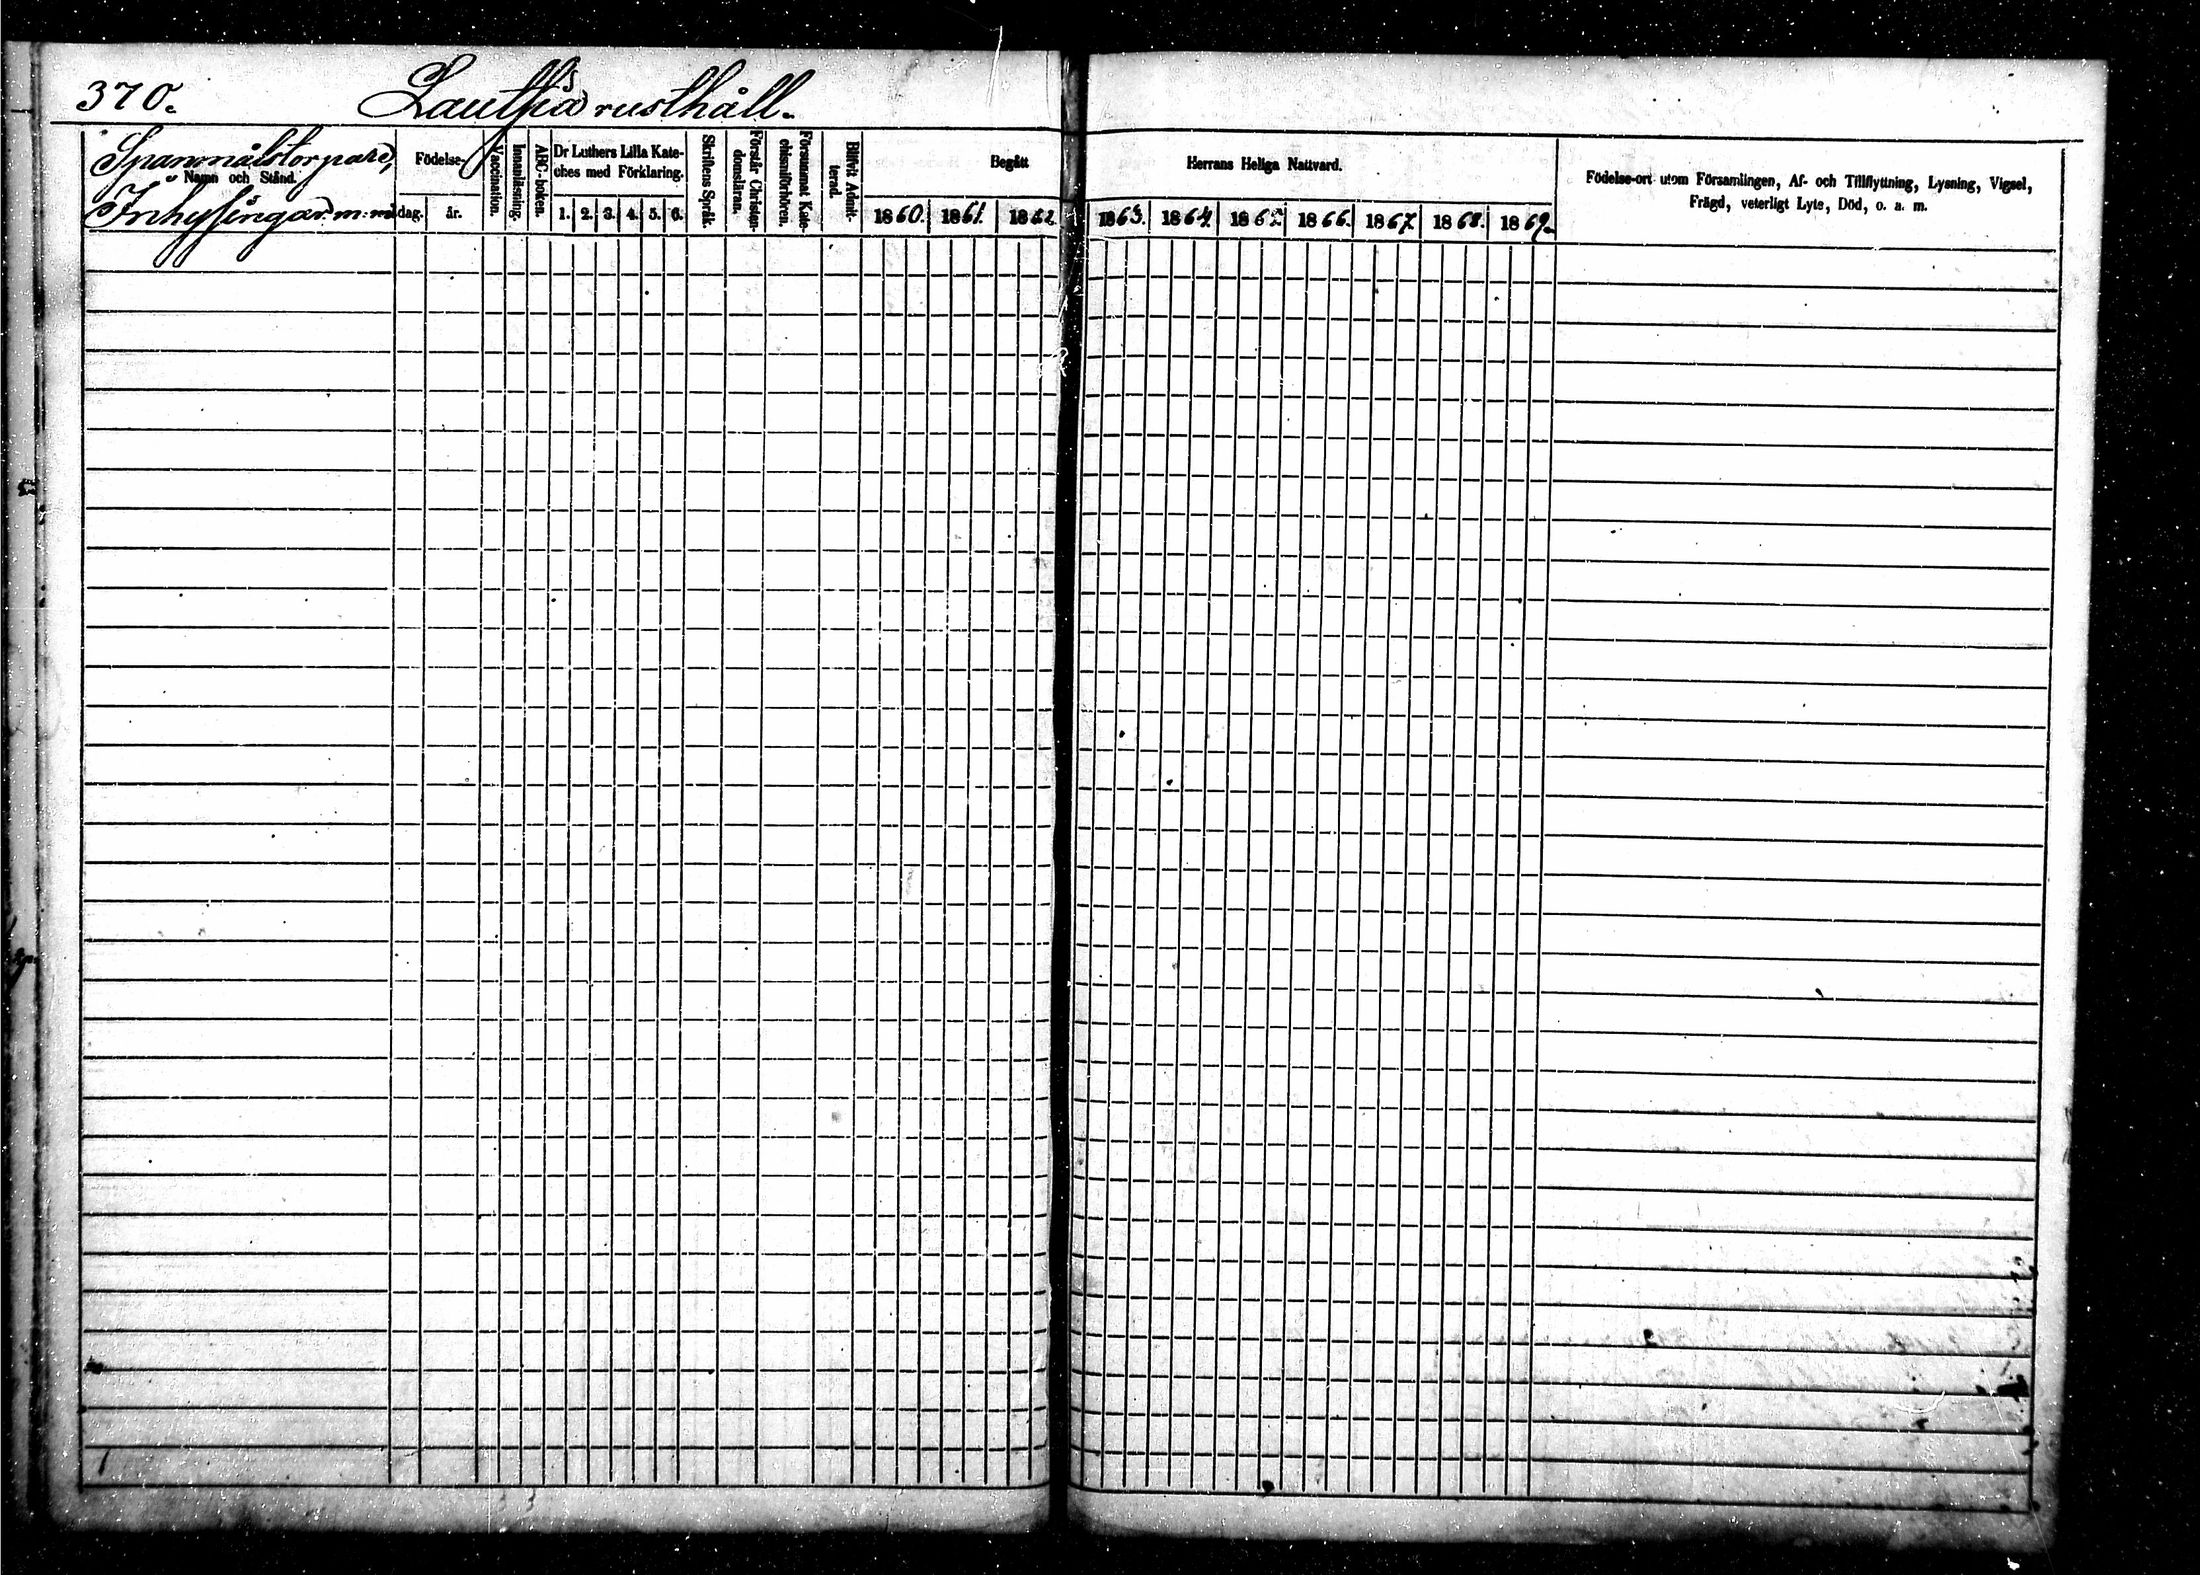 370.
rusthåll.
Spanmålstorpare,
Namn och Stånd.
Inhysingar m: m:
Födelse-
dag.
år.
Vaccination.
Innanläsning.
ABC-boken.
Dr Luthers Lilla Kate-
ches med Förklaring.
1. 2. 3. 4. 5. 6.
Skriftens Språk.
Förstår Christen-
domsläran.
Försummat Kate-
chismiförhören.
Blifvit Admit-
terad.
Begått
Herrans Heliga Nattvard.
1860. 1861. 1862. 1863. 1864. 1865. 1866. 1867. 1868. 1869.
Födelse-ort utom Församlingen, Af- och Tillflyttning, Lysning, Vigsel,
Frägd, veterligt Lyte, Död, o. a. m.